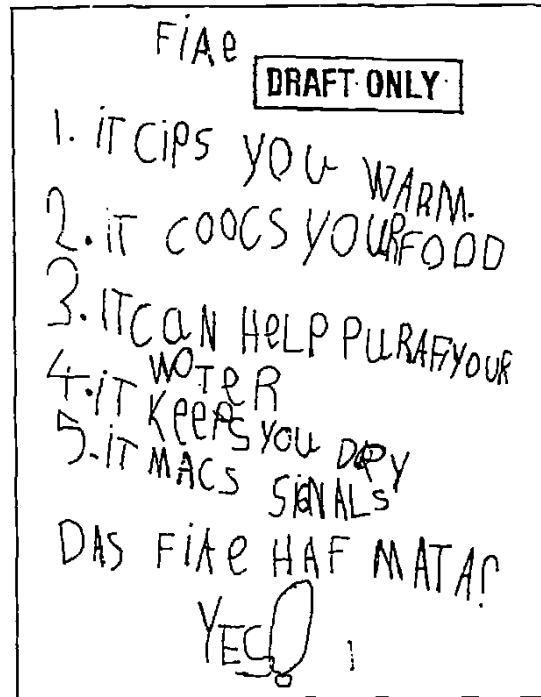 FiAe
DRAFT ONLY
1. iT CiPS YOU WARM.
2. iT COOCS YOUR FOOD
3. ITCaN HeLP PURAFYYOUR
WOTeR
4. iT KeePS YOU DRY
5. iT MACS SiGNALS
DAS FiAe HAF MATA?
YES!